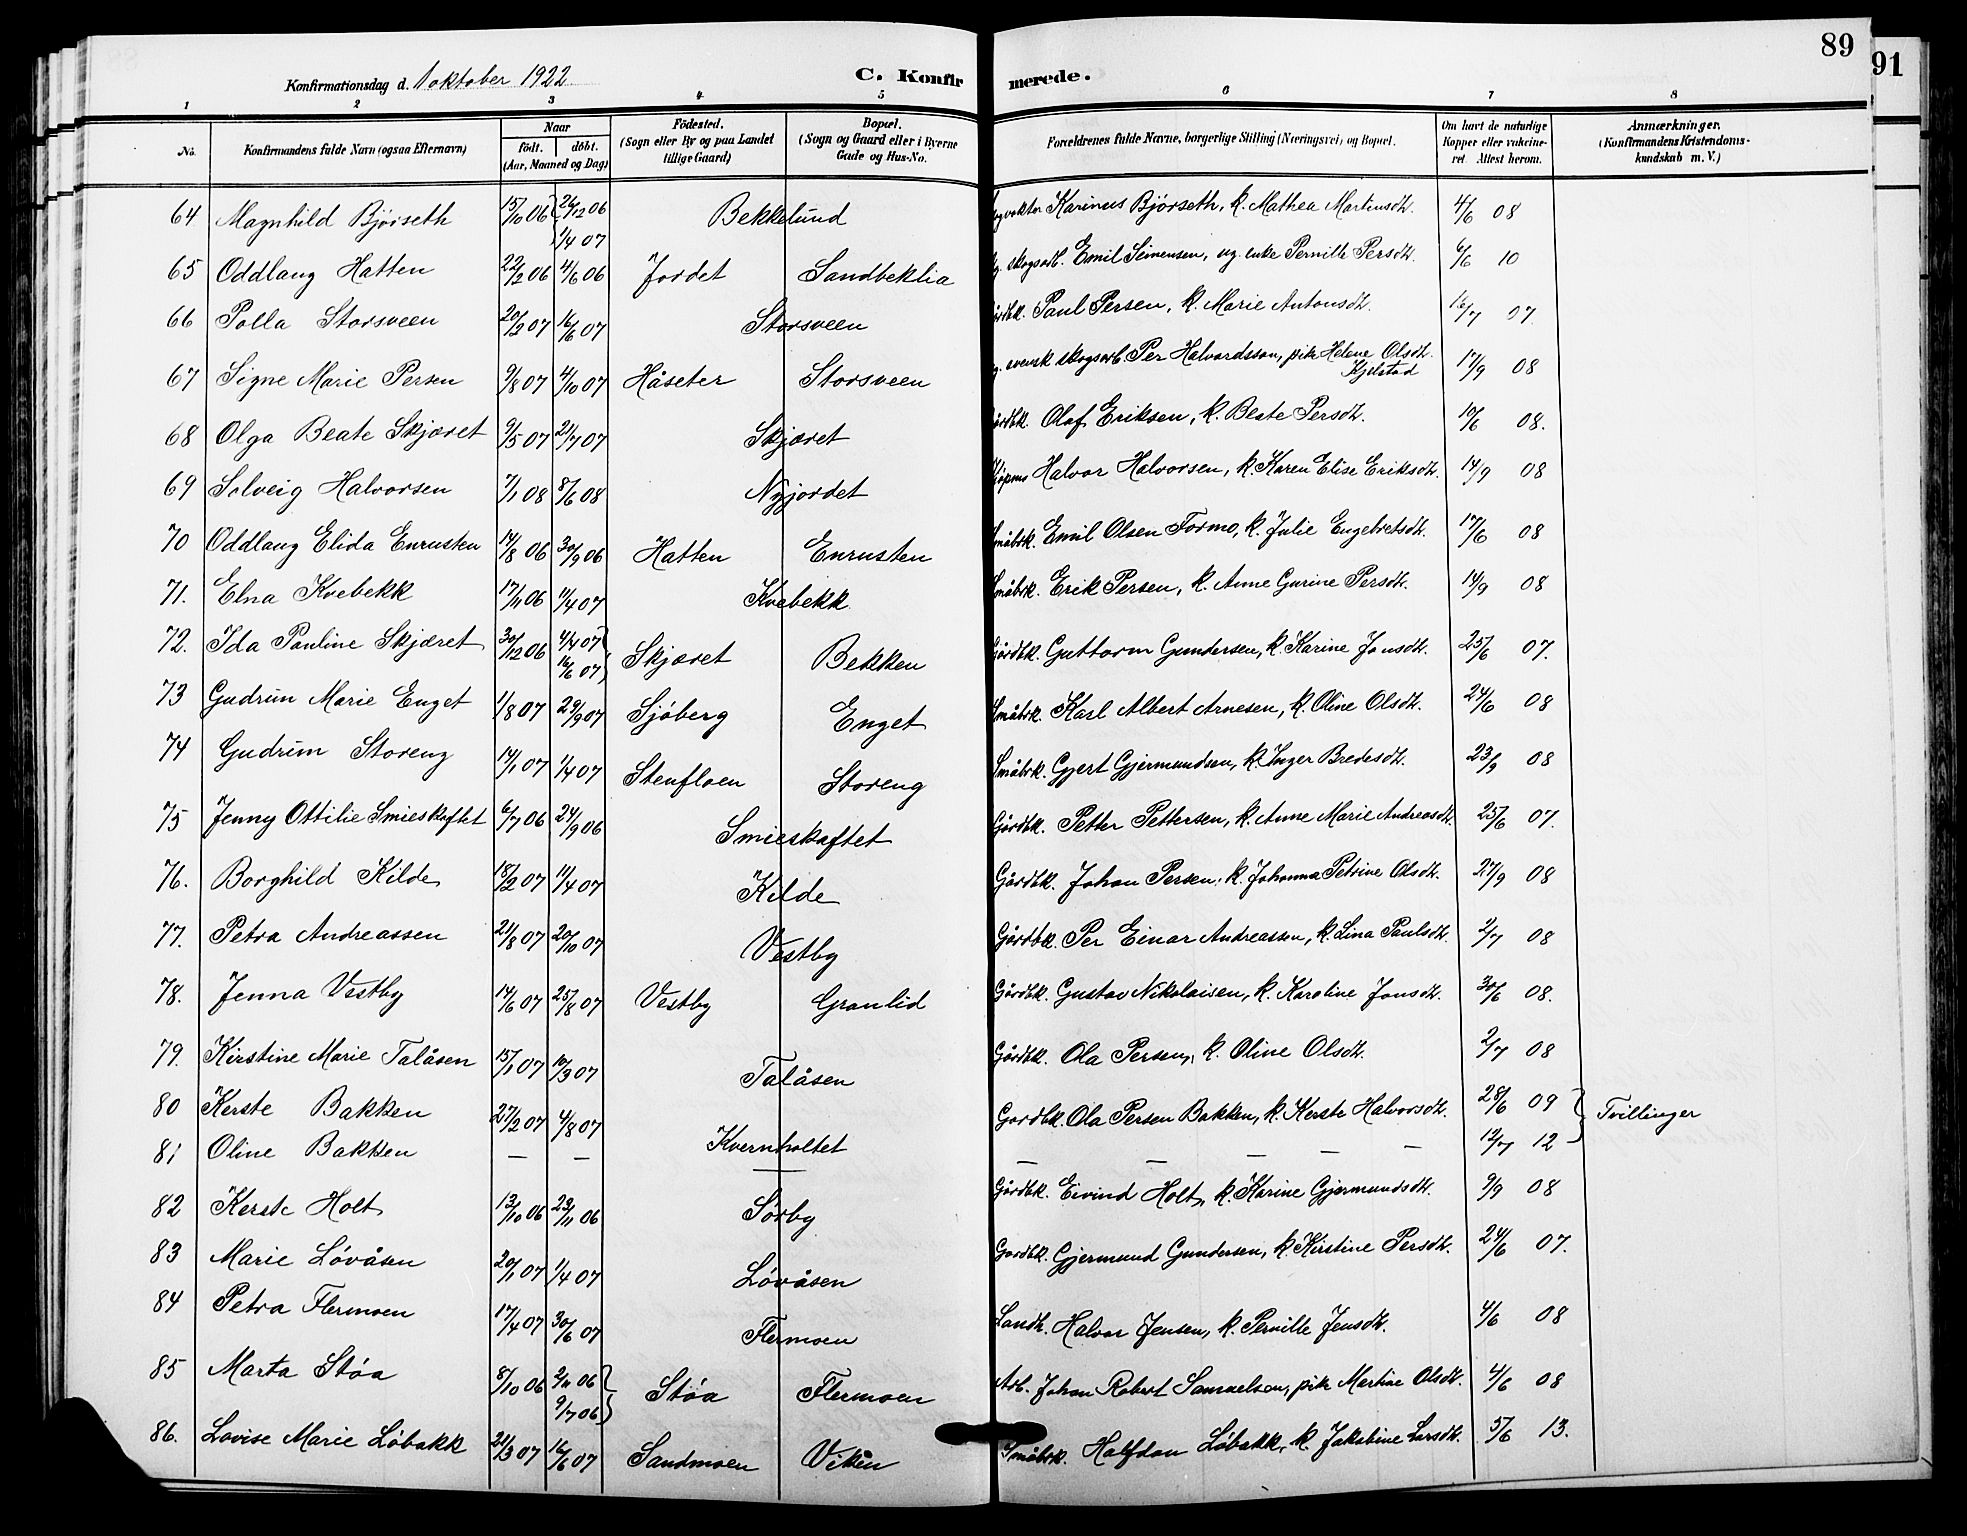 89
91
Konfirmationsdag d. 1 oktober 1922
C. Konfirmerede.
1 2 3 4 5 6 7 8
No. Konfirmandens fulde Navn (ogsaa Efternavn) Naar født. døbt. (Aar, Maaned og Dag) Födested. (Sogn eller By og paa Landet tillige Gaard) Bopæl. (Sogn og Gaard eller i Byerne Gade og Hus-No. Forældrenes fulde Navne, borgerlige Stilling (Næringsvei) og Bopæl. Om havt de naturlige Kopper eller vakcineret. Attest herom. Anmærkninger. (Konfirmandens Kristendomskundskab m. V.)
64 Magnhild Bjørseth 15/10 06 26/12 06 1/4 07 Bekkelund Karinus Bjørseth, k. Mathea Martinsdt. 4/6 08
65 Oddlaug Hatten 22/2 06 4/6 06 Jordet Sandbeklia skogsarb. Emil Simensen, ug. enke Pernille Persdt. 6/6 10
66 Polla Storsveen 20/2 07 16/6 07 Storsveen Paul Persen, k. Marie Antonsdt. 16/7 07.
67 Signe Marie Persen 9/8 07 4/10 07 Håseter Storsveen svensk skogsarb. Per Halvordsson, pike Helene Olsdt. Kjelstad 17/9 08
68 Olga Beate Skjæret 9/5 07 21/7 07 Skjæret Olaf Eriksen, k. Beate Persdt. 10/6 08.
69 Solveig Halvorsen 7/1 08 8/6 08 Nyjordet Halvor Halvorsen, k. Karen Elise Eriksdt. 14/9 08
70 Oddlaug Elida Enrusten 14/8 06 30/9 06 Hatten Enrusten Småbrk. Emil Olsen Formo, k. Julie Engebretsdt. 17/6 08
71. Elna Kvebekk 17/11 06 1/4 07 Kvebekk Småbrk. Erik Persen, k. Anne Gurine Persdt. 14/9 08
72. Ida Pauline Skjæret 30/12 06 4/4 07 16/6 07 Skjæret Bekken Gårdbk. Guttorm Gundersen, k. Karine Jonsdt. 25/6 07.
73 Gudrun Marie Enget 1/8 07 29/9 07 Sjøberg Enget Småbrk. Karl Albert Arnesen, k. Oline Olsdt. 24/6 08
74 Gudrun Storeng 14/1 07 1/4 07 Stenfloen Storeng Småbrk. Gjert Gjermundsen, k. Inger Bredesdt. 23/9 08
75 Jenny Ottilie Smieskaftet 6/7 06 24/9 06 Smieskaftet Gårdbk. Petter Pettersen, k. Anne Marie Andreasdt. 25/6 07.
76. Borghild Kilde 18/2 07 1/4 07 Kilde Gårdbk. Johan Persen, k. Johanna Petrine Olsdt. 27/9 08
77. Petra Andreassen 21/8 07 20/10 07 Vestby Gårdbk. Per Einar Andreassen, k. Lina Paulsdt. 2/7 08
78. Jenna Vestby 14/6 07 25/8 07 Vestby Granlid Gårdbk. Gustav Nikolaisen, k. Karoline Jonsdt. 30/6 08.
79. Kirstine Marie Talåsen 15/1 07 10/3 07 Talåsen Gårdbk. Ola Persen, k. Oline Olsdt. 2/7 08
80 Kerste Bakken 27/2 07 4/8 07 Kvernholtet Gardbk. Ola Persen Bakken, k. Kerste Halvorsdt. 28/6 09 Tvillinger
81 Oline Bakken — — — — — — — 12/7 12
82 Kerste Holt 13/10 06 29/11 06 Sørby Gårdbk. Eivind Holt, k. Karine Gjermundsdt. 9/9 08
83 Marie Løvåsen 20/1 07 1/4 07 Løvåsen Gardbk. Gjermund Gundersen, k. Kirstine Persdt. 24/6 07.
84 Petra Flermoen 17/4 07 30/6 07 Flermoen Landh. Halvor Jensen, k. Pernille Jensdt. 4/6 08
85 Marta Støa 8/10 06 2/11 06 9/7 06 Støa Flermoen Arb. Johan Robert Samuelsen, pike Martine Olsdt. 4/6 08
86. Lovise Marie Løbakk 21/3 07 16/6 07 Sandmoen Viken Småbrk. Halfdan Løbakk, k. Jakobine Larsdt. 5/6 13.